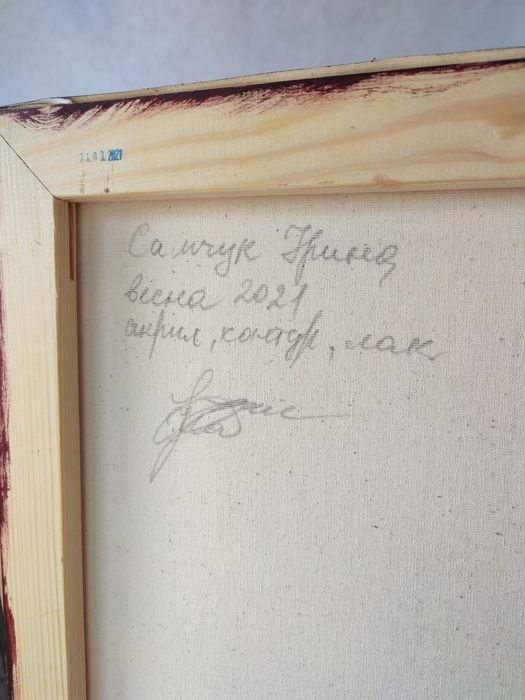 03.2021
Самчук Ірина
весна 2021
акрил, контур, лак